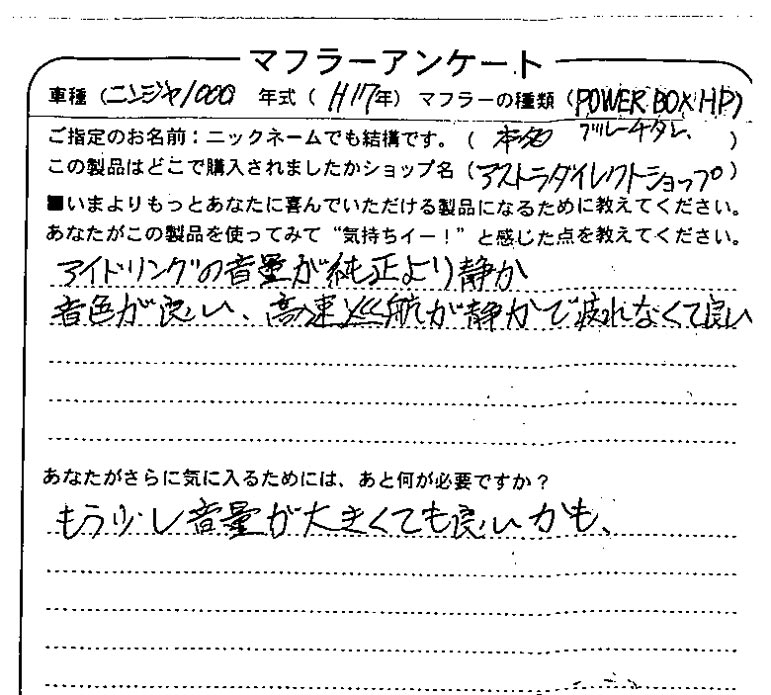 マフラーアンケート
車種（ニンジャ1000 年式（H17年）マフラーの種類（POWER BOX HP）
ご指定のお名前：ニックネームでも結構です。（ 本名 ブルーチタン、）
この製品はどこで購入されましたかショップ名（アストラダイレクトショップ）
■いまよりもっとあなたに喜んでいただける製品になるために教えてください。
あなたがこの製品を使ってみて“気持ちイー！”と感じた点を教えてください。
アイドリングの音量が純正より静か
音色が良い、高速巡航が静かで疲れなくて良い
あなたがさらに気に入るためには、あと何が必要ですか？
もう少し音量が大きくても良いかも、